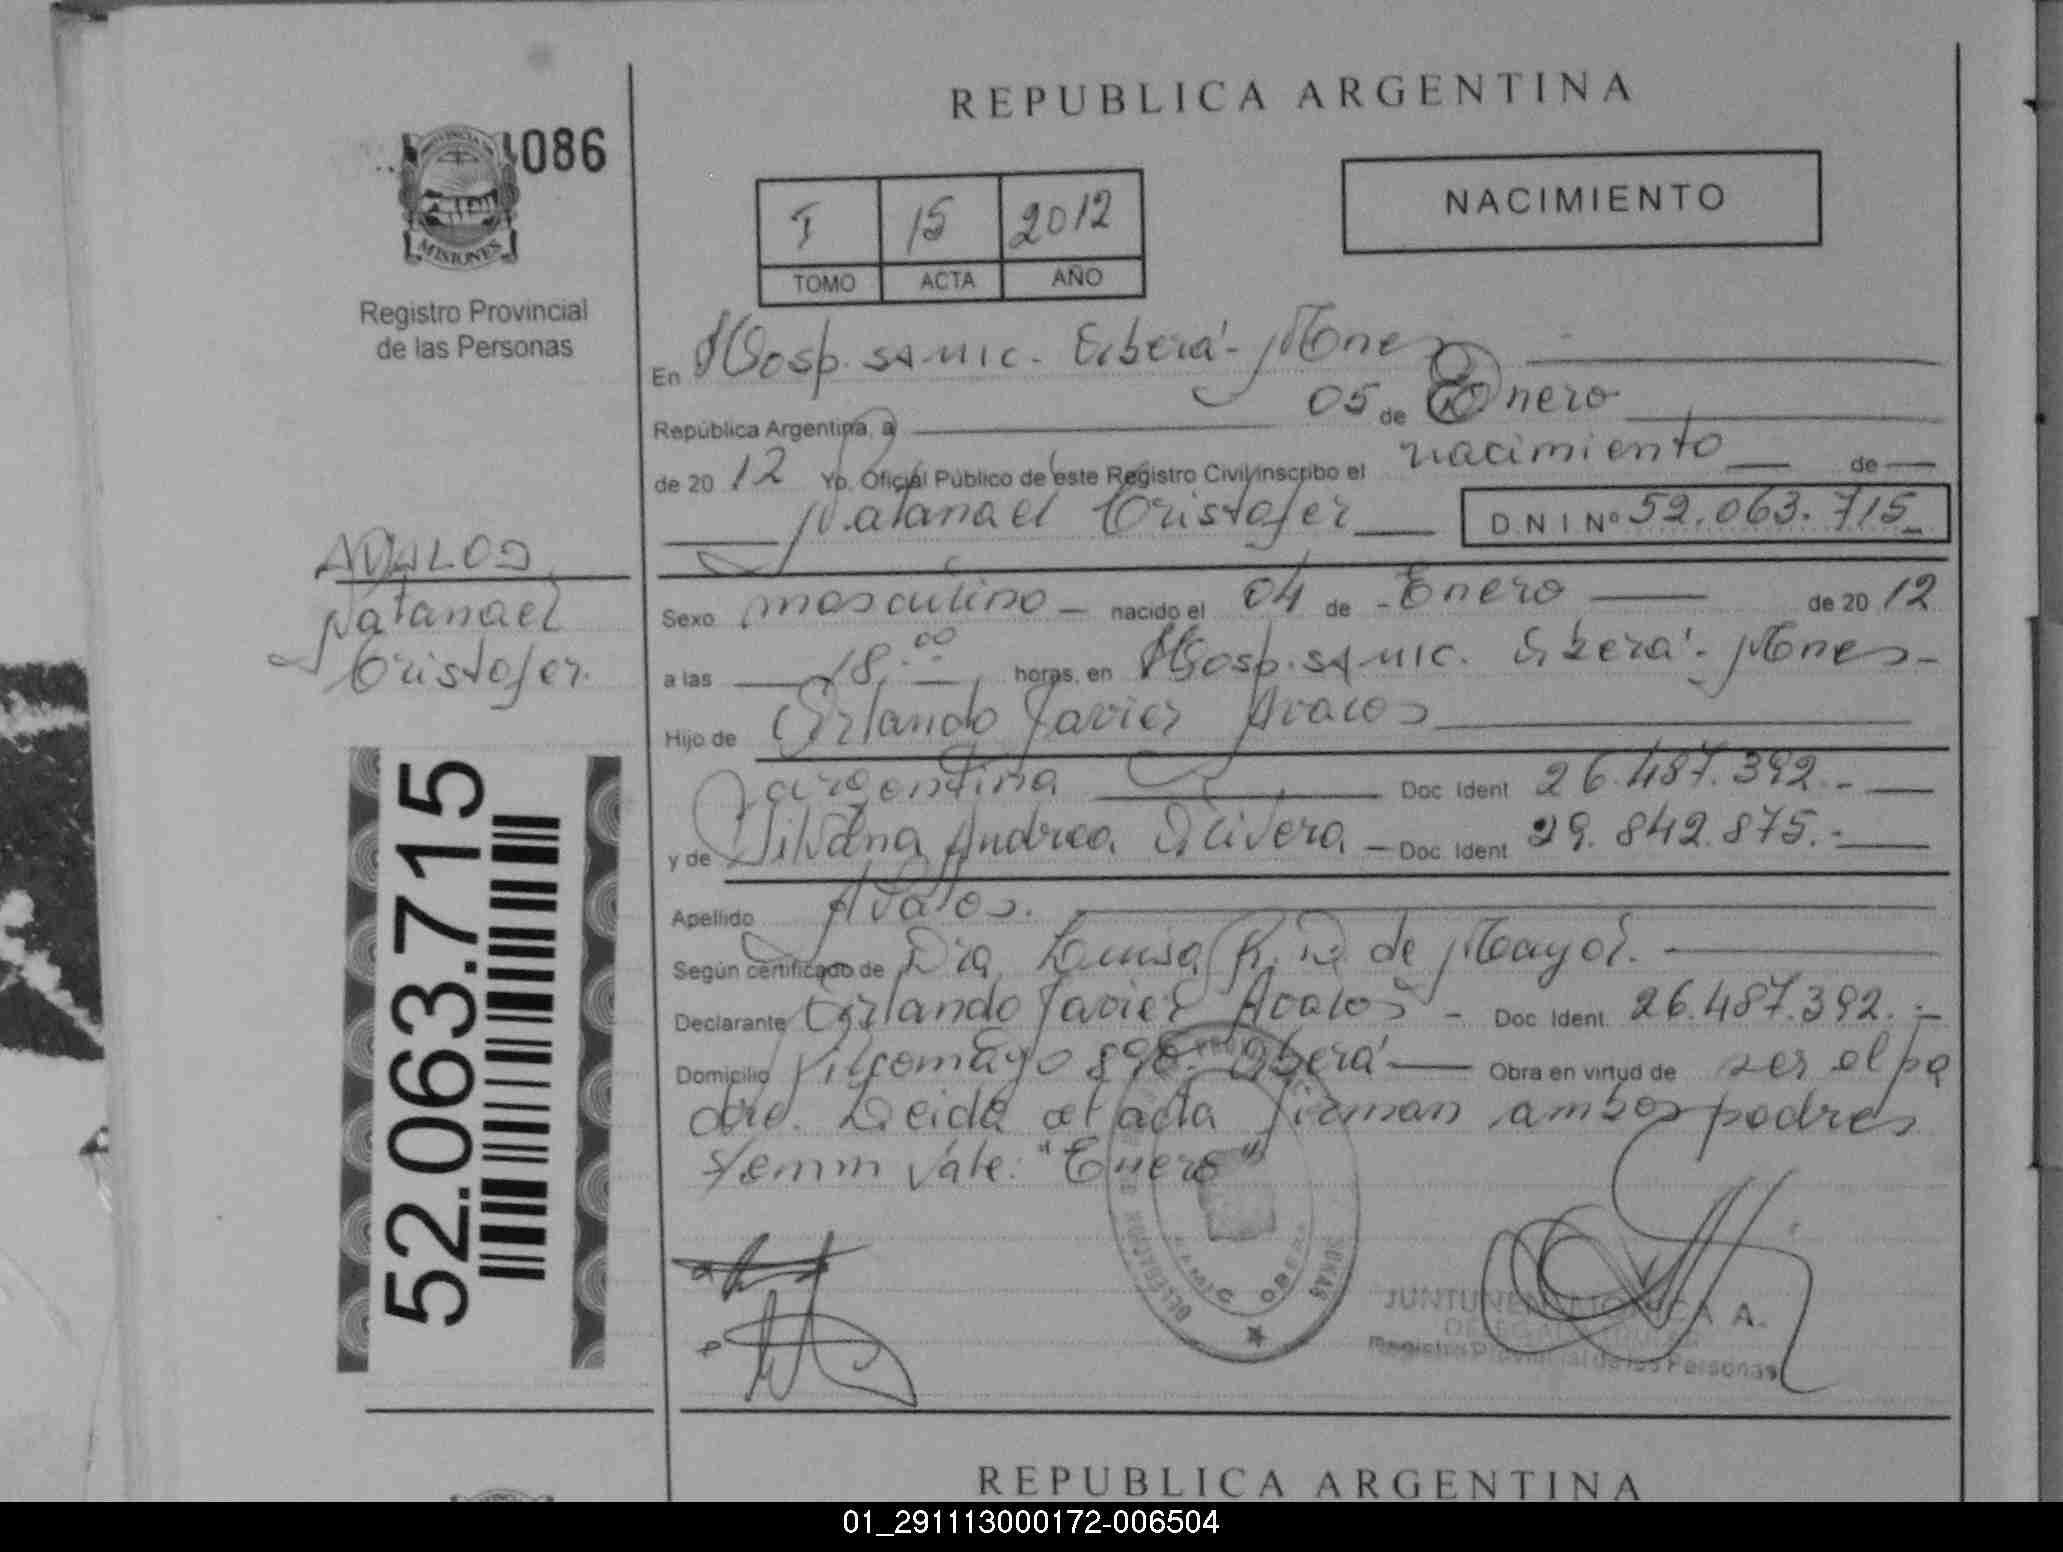 REPUBLICA ARGENTINA
086
PROVINCIA
MISIONES
Registro Provincial
de las Personas
I 15 2012
TOMO ACTA AÑO
NACIMIENTO
En Hosp. SAMIC. Oberá - Mnes
República Argentina, a 05 de Enero
de 20 12 Yo, Oficial Público de este Registro Civil inscribo el nacimiento de
Natanael Cristofer D.N I Nº 52.063.715
AVALOS
Natanael
Cristofer.
Sexo masculino - nacido el 04 de - Enero de 20 12
a las 18.00 horas, en Hosp. SAMIC. Oberá - Mnes -
Hijo de Orlando Javier Avalos
argentina Doc Ident 26.487.392.-
y de Silvana Andrea Olivera - Doc Ident 29.842.875.-
Apellido Avalos.
Según certificado de Dra Luisa R. D de Mayol.
Declarante Orlando Javier Avalos - Doc Ident. 26.487.392.-
Domicilio Pilcomayo 890. Oberá Obra en virtud de ser el pa
dre. Leida el acta firman ambos padres
s/enm vale: "Enero"
52.063.715
SAMIC OBERA
A.
Registro Provincial de las Personas
REPUBLICA ARGENTINA
01_291113000172-006504